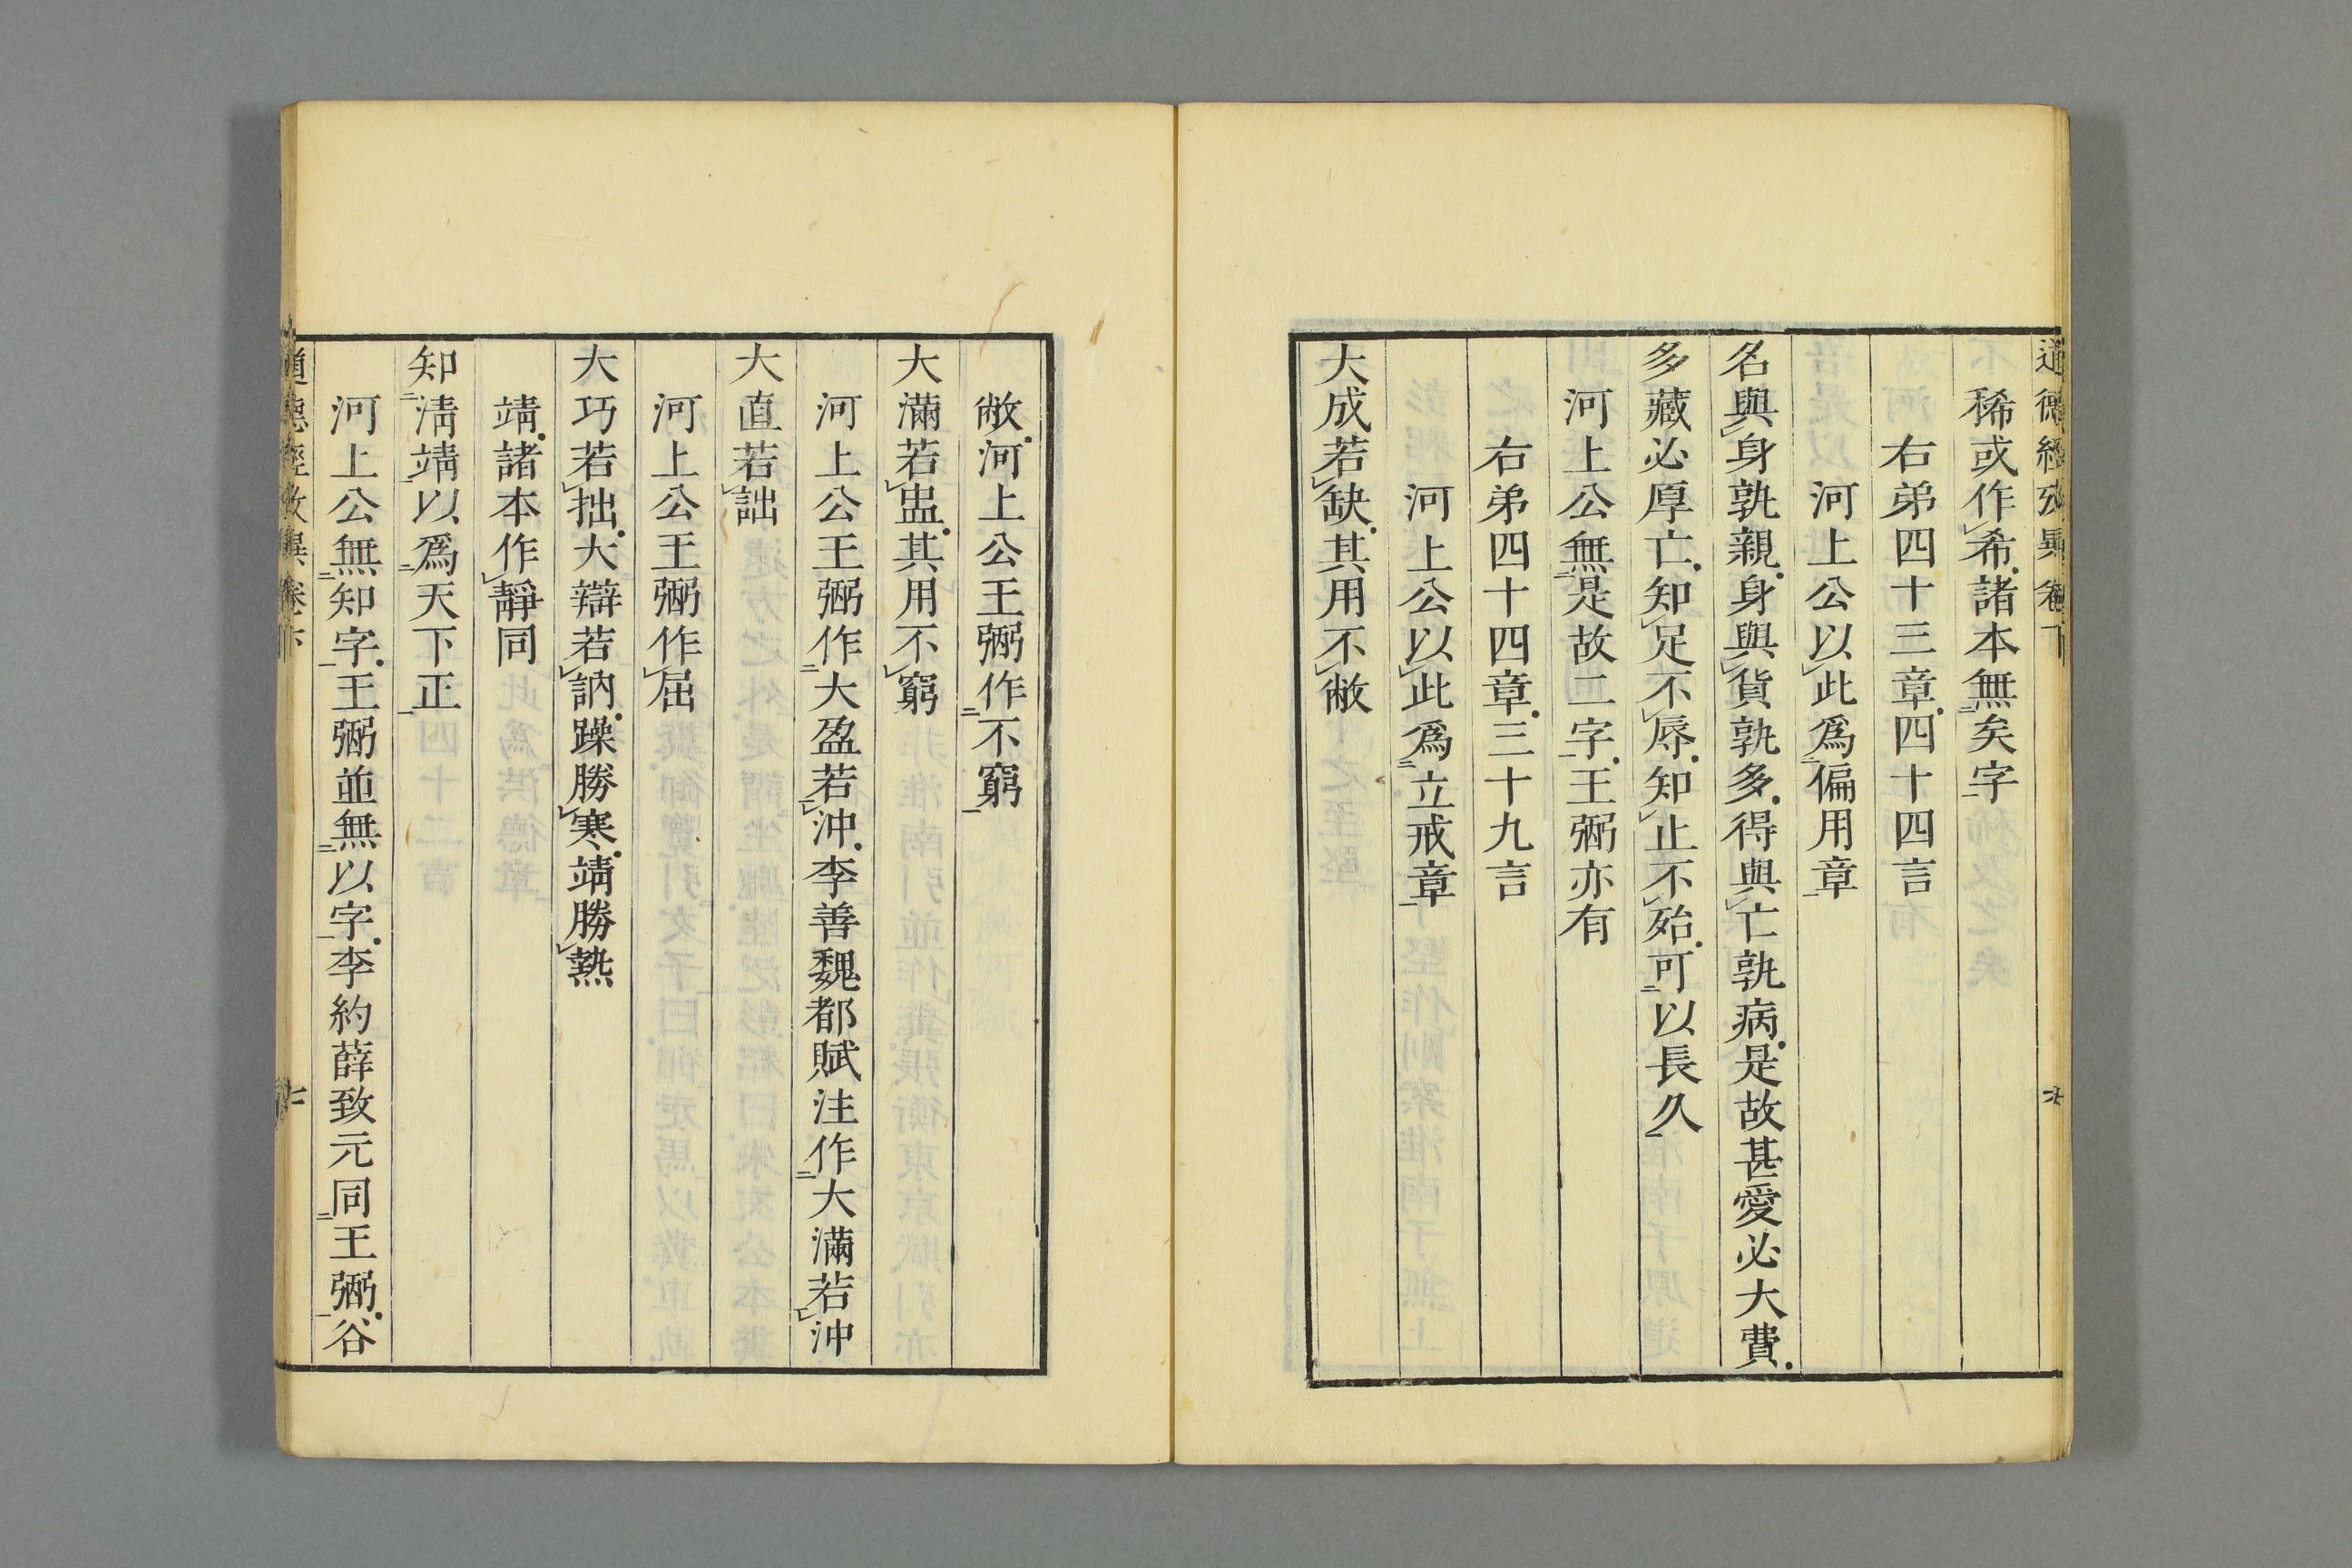 道德經攷異卷下
稀或作希諸本無矣字
右弟四十三章四十四言
河上公以此爲偏用章
名與身孰親身與貨孰多得與亡孰病是故甚愛必大費
多藏必厚亡知足不辱知止不殆可以長久
河上公無是故二字王弼亦有
右弟四十四章三十九言
河上公以此爲立戒章
大成若缺其用不敝
敝河上公王弼作不窮
大滿若盅其用不窮
河上公王弼作大盈若沖李善魏都賦注作大滿若沖
大直若詘
河上公王弼作屈
大巧若拙大辯若訥躁勝寒靖勝熱
靖諸本作靜同
知淸靖以爲天下正
河上公無知字王弼並無以字李約薛致元同王弼谷
道德經攷異卷下 七